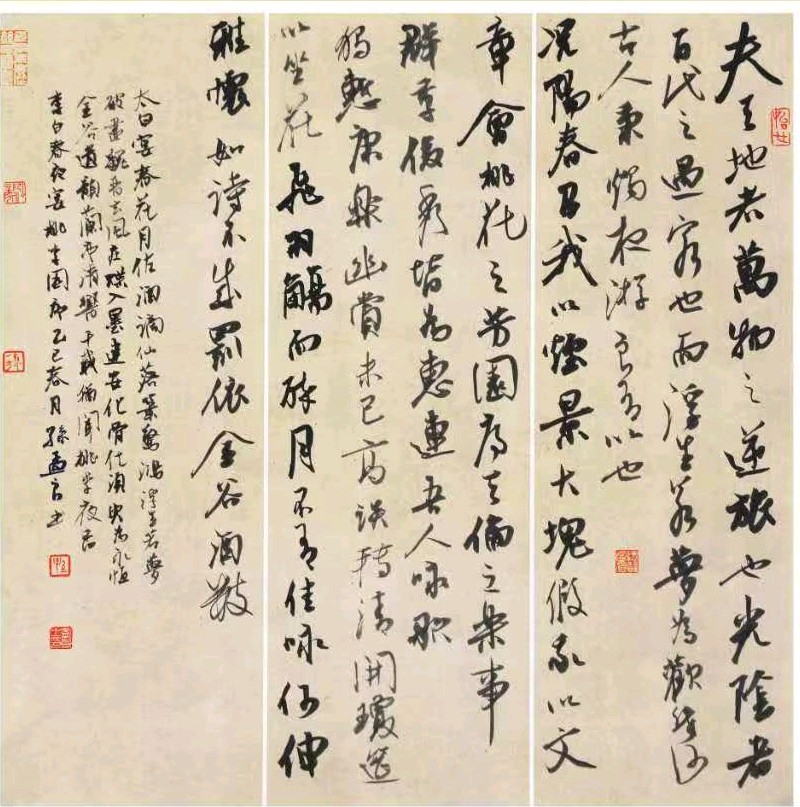 夫天地者萬物之逆旅也光陰者
百代之過客也而浮生若夢為歡幾何
古人秉燭夜游良有以也
况陽春召我以煙景大塊假我以文
章會桃花之芳園序天倫之樂事
群季俊秀皆為惠連吾人咏歌
獨慙康樂幽賞未已高談轉清開瓊筵
以坐花飛羽觴而醉月不有佳咏何伸
雅懷如詩不成罰依金谷酒數
太白宴春花月佐酒謫仙落筆驚鴻浮生若夢
蝶入墨連化骨須臾為永恒
金谷遺韻蘭亭清響千載猶聞桃李夜
李白春夜宴桃李園序乙巳春月孫孟言书